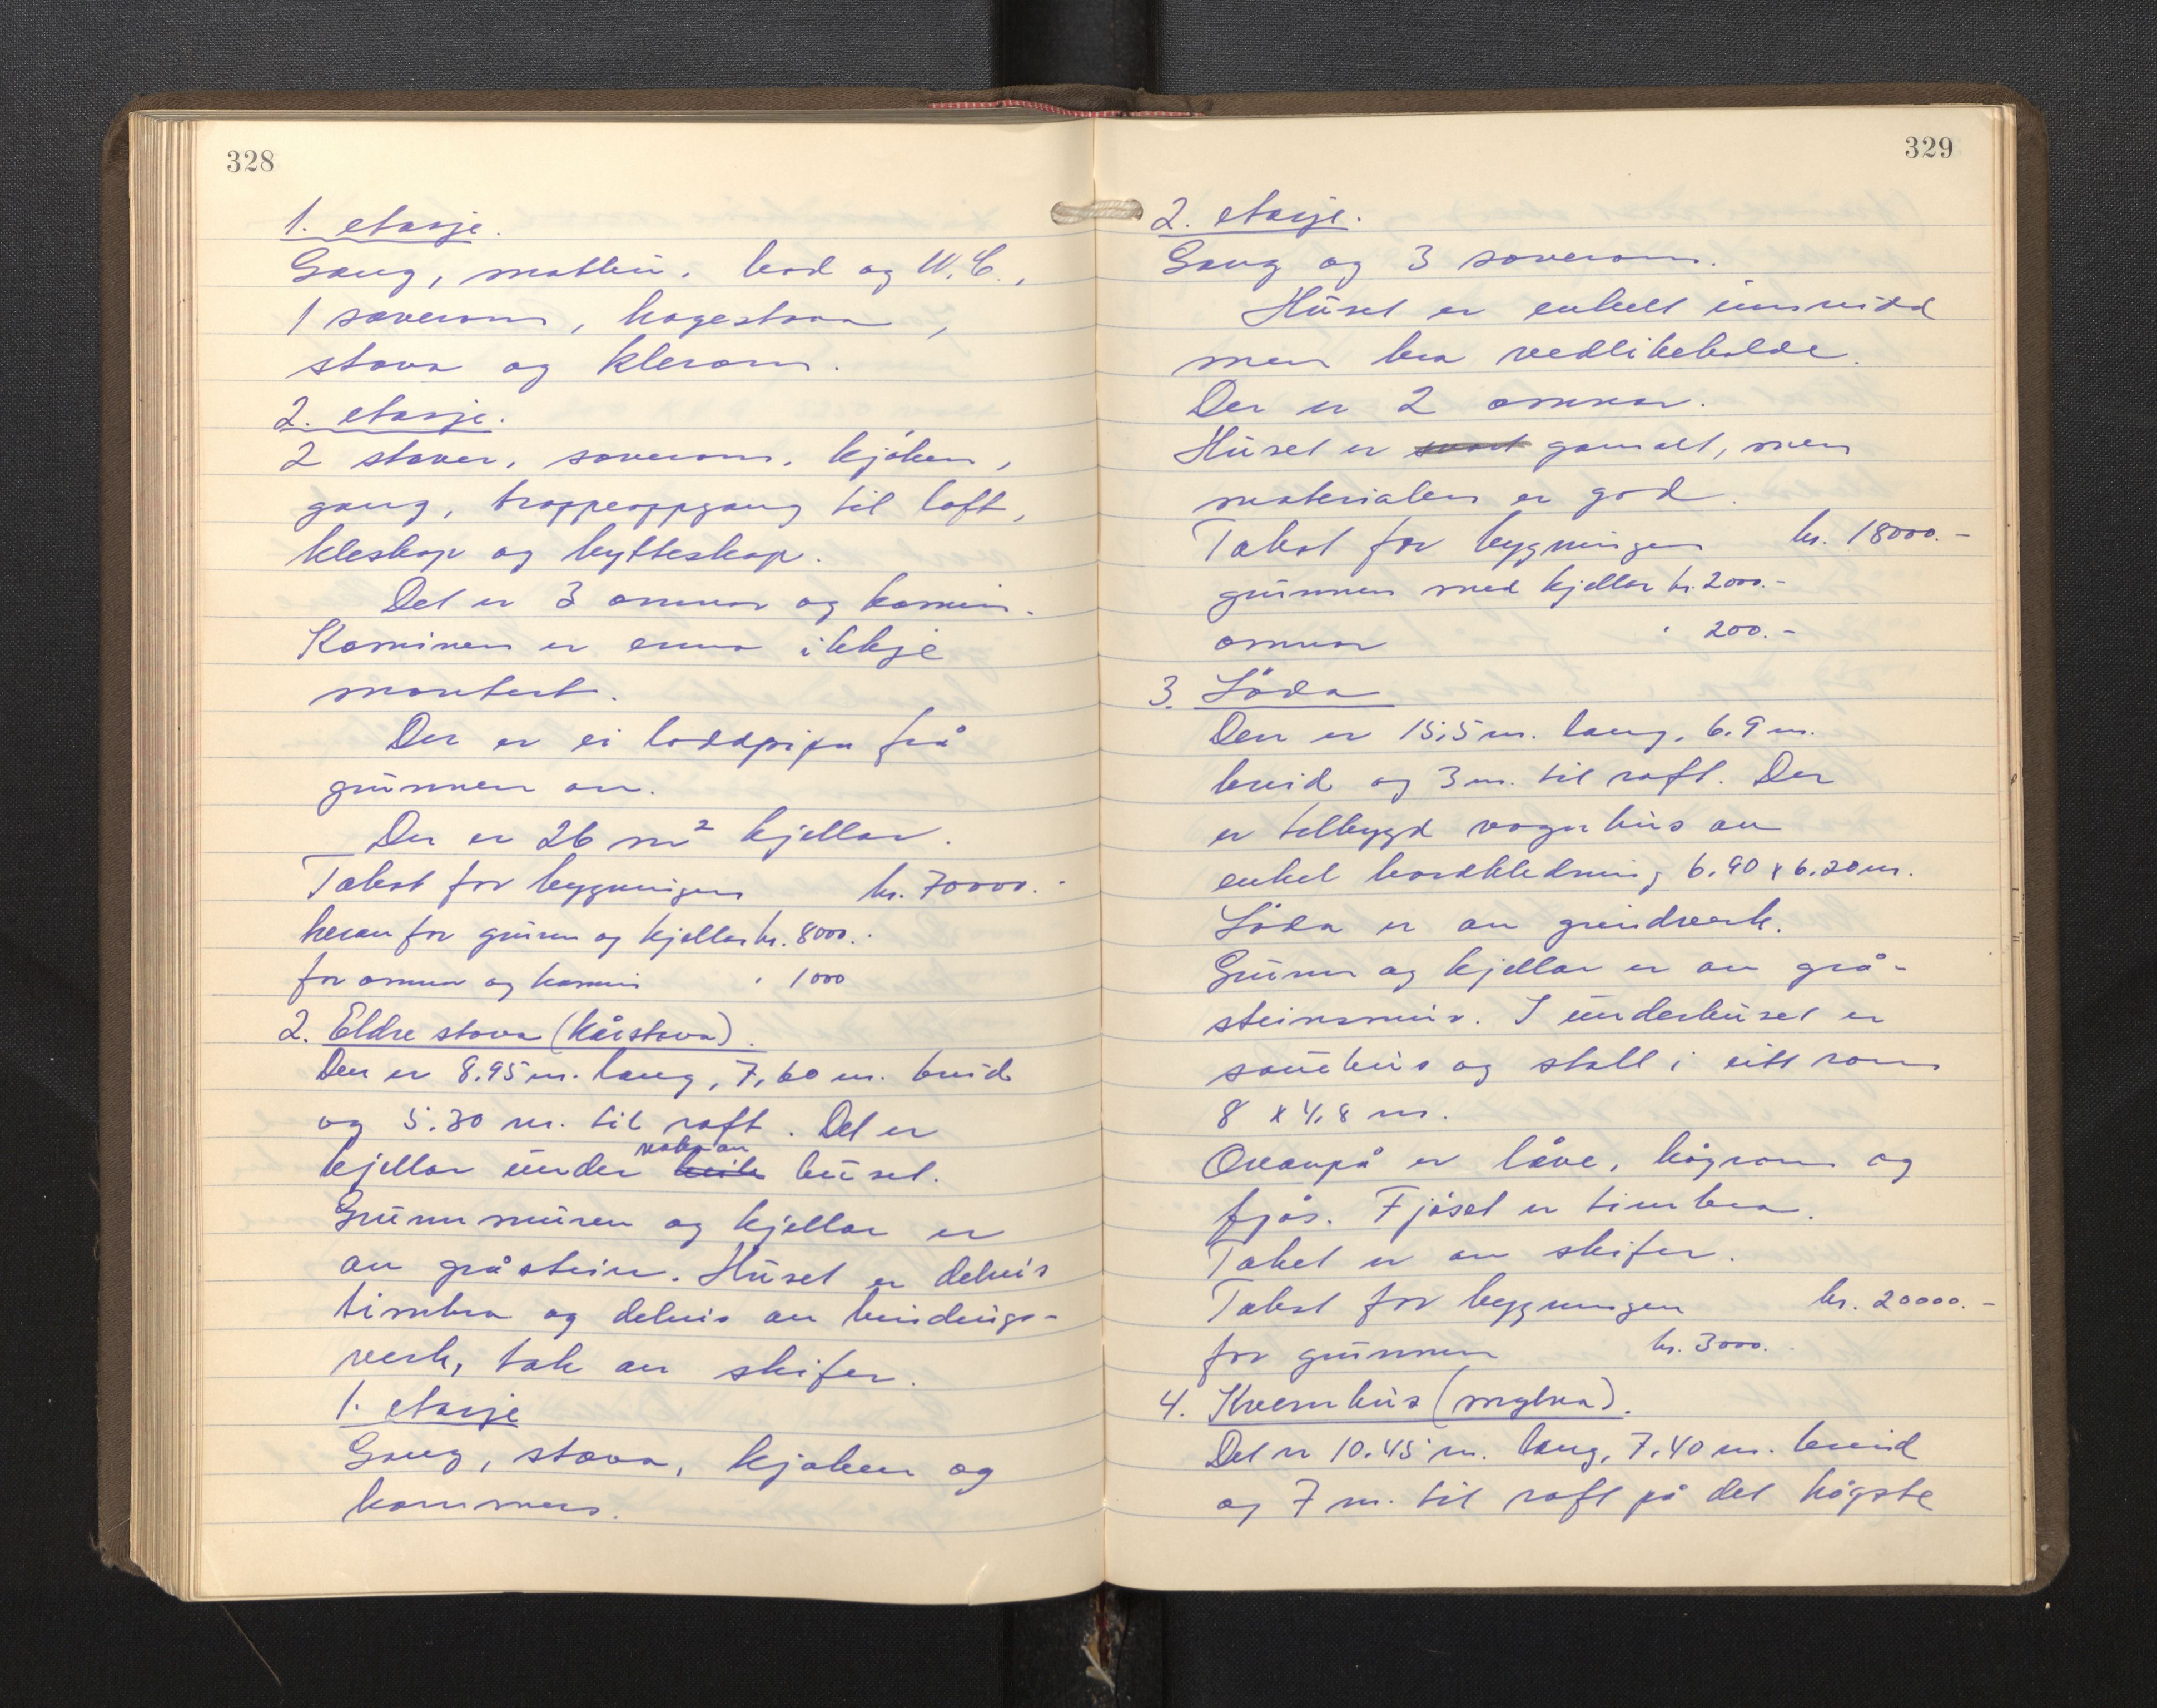 328
1. etasje.
Gang, matbu, bad og W.C.,
1 soverom, hagestova,
stova og klerom.
2. etasje.
2 stover, soverom, kjøken,
gang, trappeoppgang til loft,
kleskap og bytteskap.
Det er 3 omnar og kamin.
Kaminen er enno ikkje
montert.
Der er ei loddpipa frå
grunnen av.
Der er 26 m² kjellar.
Takst for bygningen kr. 70000.-
herav for grunn og kjellar kr. 8000.-
for omnar og kamin " 1000
2. Eldre stova (kårstova).
Den er 8.95 m. lang, 7,60 m. breid
og 5.30 m. til raft. Det er
kjellar under noko av heile huset.
Grunnmuren og kjellar er
av gråstein. Huset er delvis
timbra og delvis av bindings-
verk, tak av skifer.
1. etasje
Gang, stova, kjøken og
kammers.
329
2. etasje.
Gang og 3 soverom.
Huset er enkelt innreidd
men bra vedlikeholde.
Der er 2 omnar.
Huset er svært gamalt, men
materialen er god.
Takst for bygningen kr. 18000.-
grunnen med kjellar kr. 2000.-
omnar " 200.-
3. Löda
Den er 15,5 m. lang, 6.9 m.
breid og 3 m. til raft. Der
er tilbygd vognhus av
enkel bordkledning 6.90 x 6.20 m.
Löda er av grindverk.
Grunn og kjellar er av grå-
steinsmur. I underhuset er
sauehus og stall i eitt rom
8 x 4,8 m.
Ovanpå er låve, høyrom og
fjøs. Fjøset er timbra.
Taket er av skifer.
Takst for bygningen kr. 20000.-
for grunnen kr. 3000.-
4. Kvernhus (mylna).
Det er 10.45 m. lang, 7.40 m. breid
og 7 m. til raft på det høgste